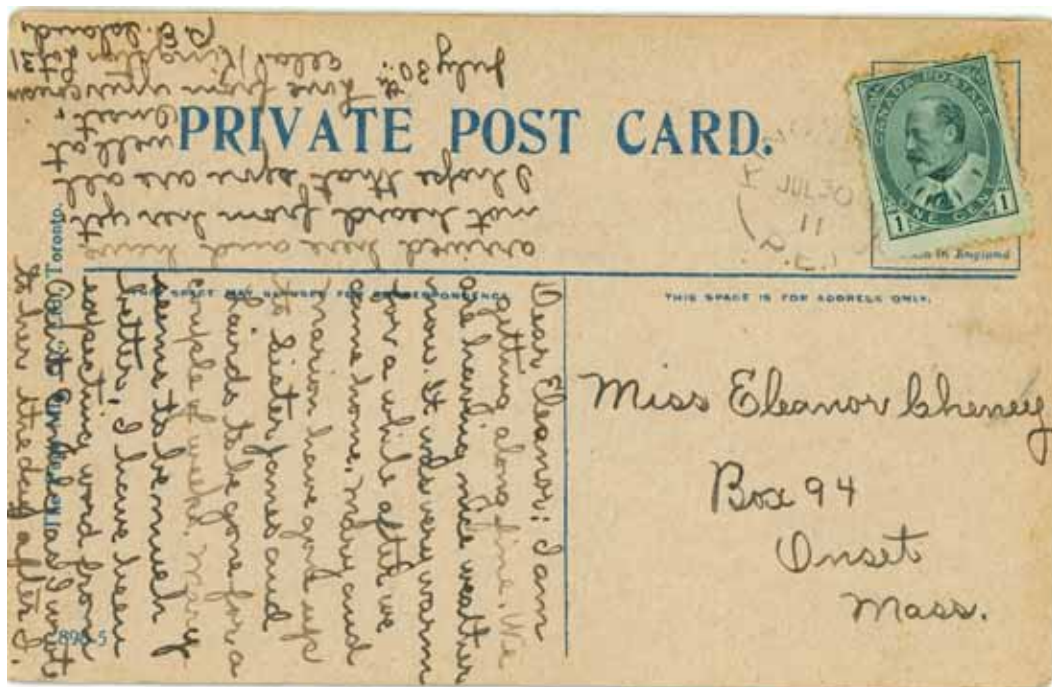 PRIVATE POST CARD.
CANADA POSTAGE
1 ONE CENT 1
JUL 30
11
P.E.I
in England
THIS SPACE MAY BE USED FOR CORRESPONDENCE
THIS SPACE IS FOR ADDRESS ONLY.
Miss Eleanor Cheney
Box 94
Onset
Mass.
Dear Eleanor: I am
getting along fine. We
are having nice weather
now. It was very warm
for a while after we
came home. Mary and
Marion have gone up
to Sister Jane's and
Laird's to be gone for a
couple of weeks. Mary
seems to be much
better, I have been
expecting word from
Aunt as I wrote
to her the day after I
arrived here and have
not heard from her yet
I hope that you are all
well at
Onset
July 30th. Love from
P.E. Island
Lot 31
Toronto.
896 5